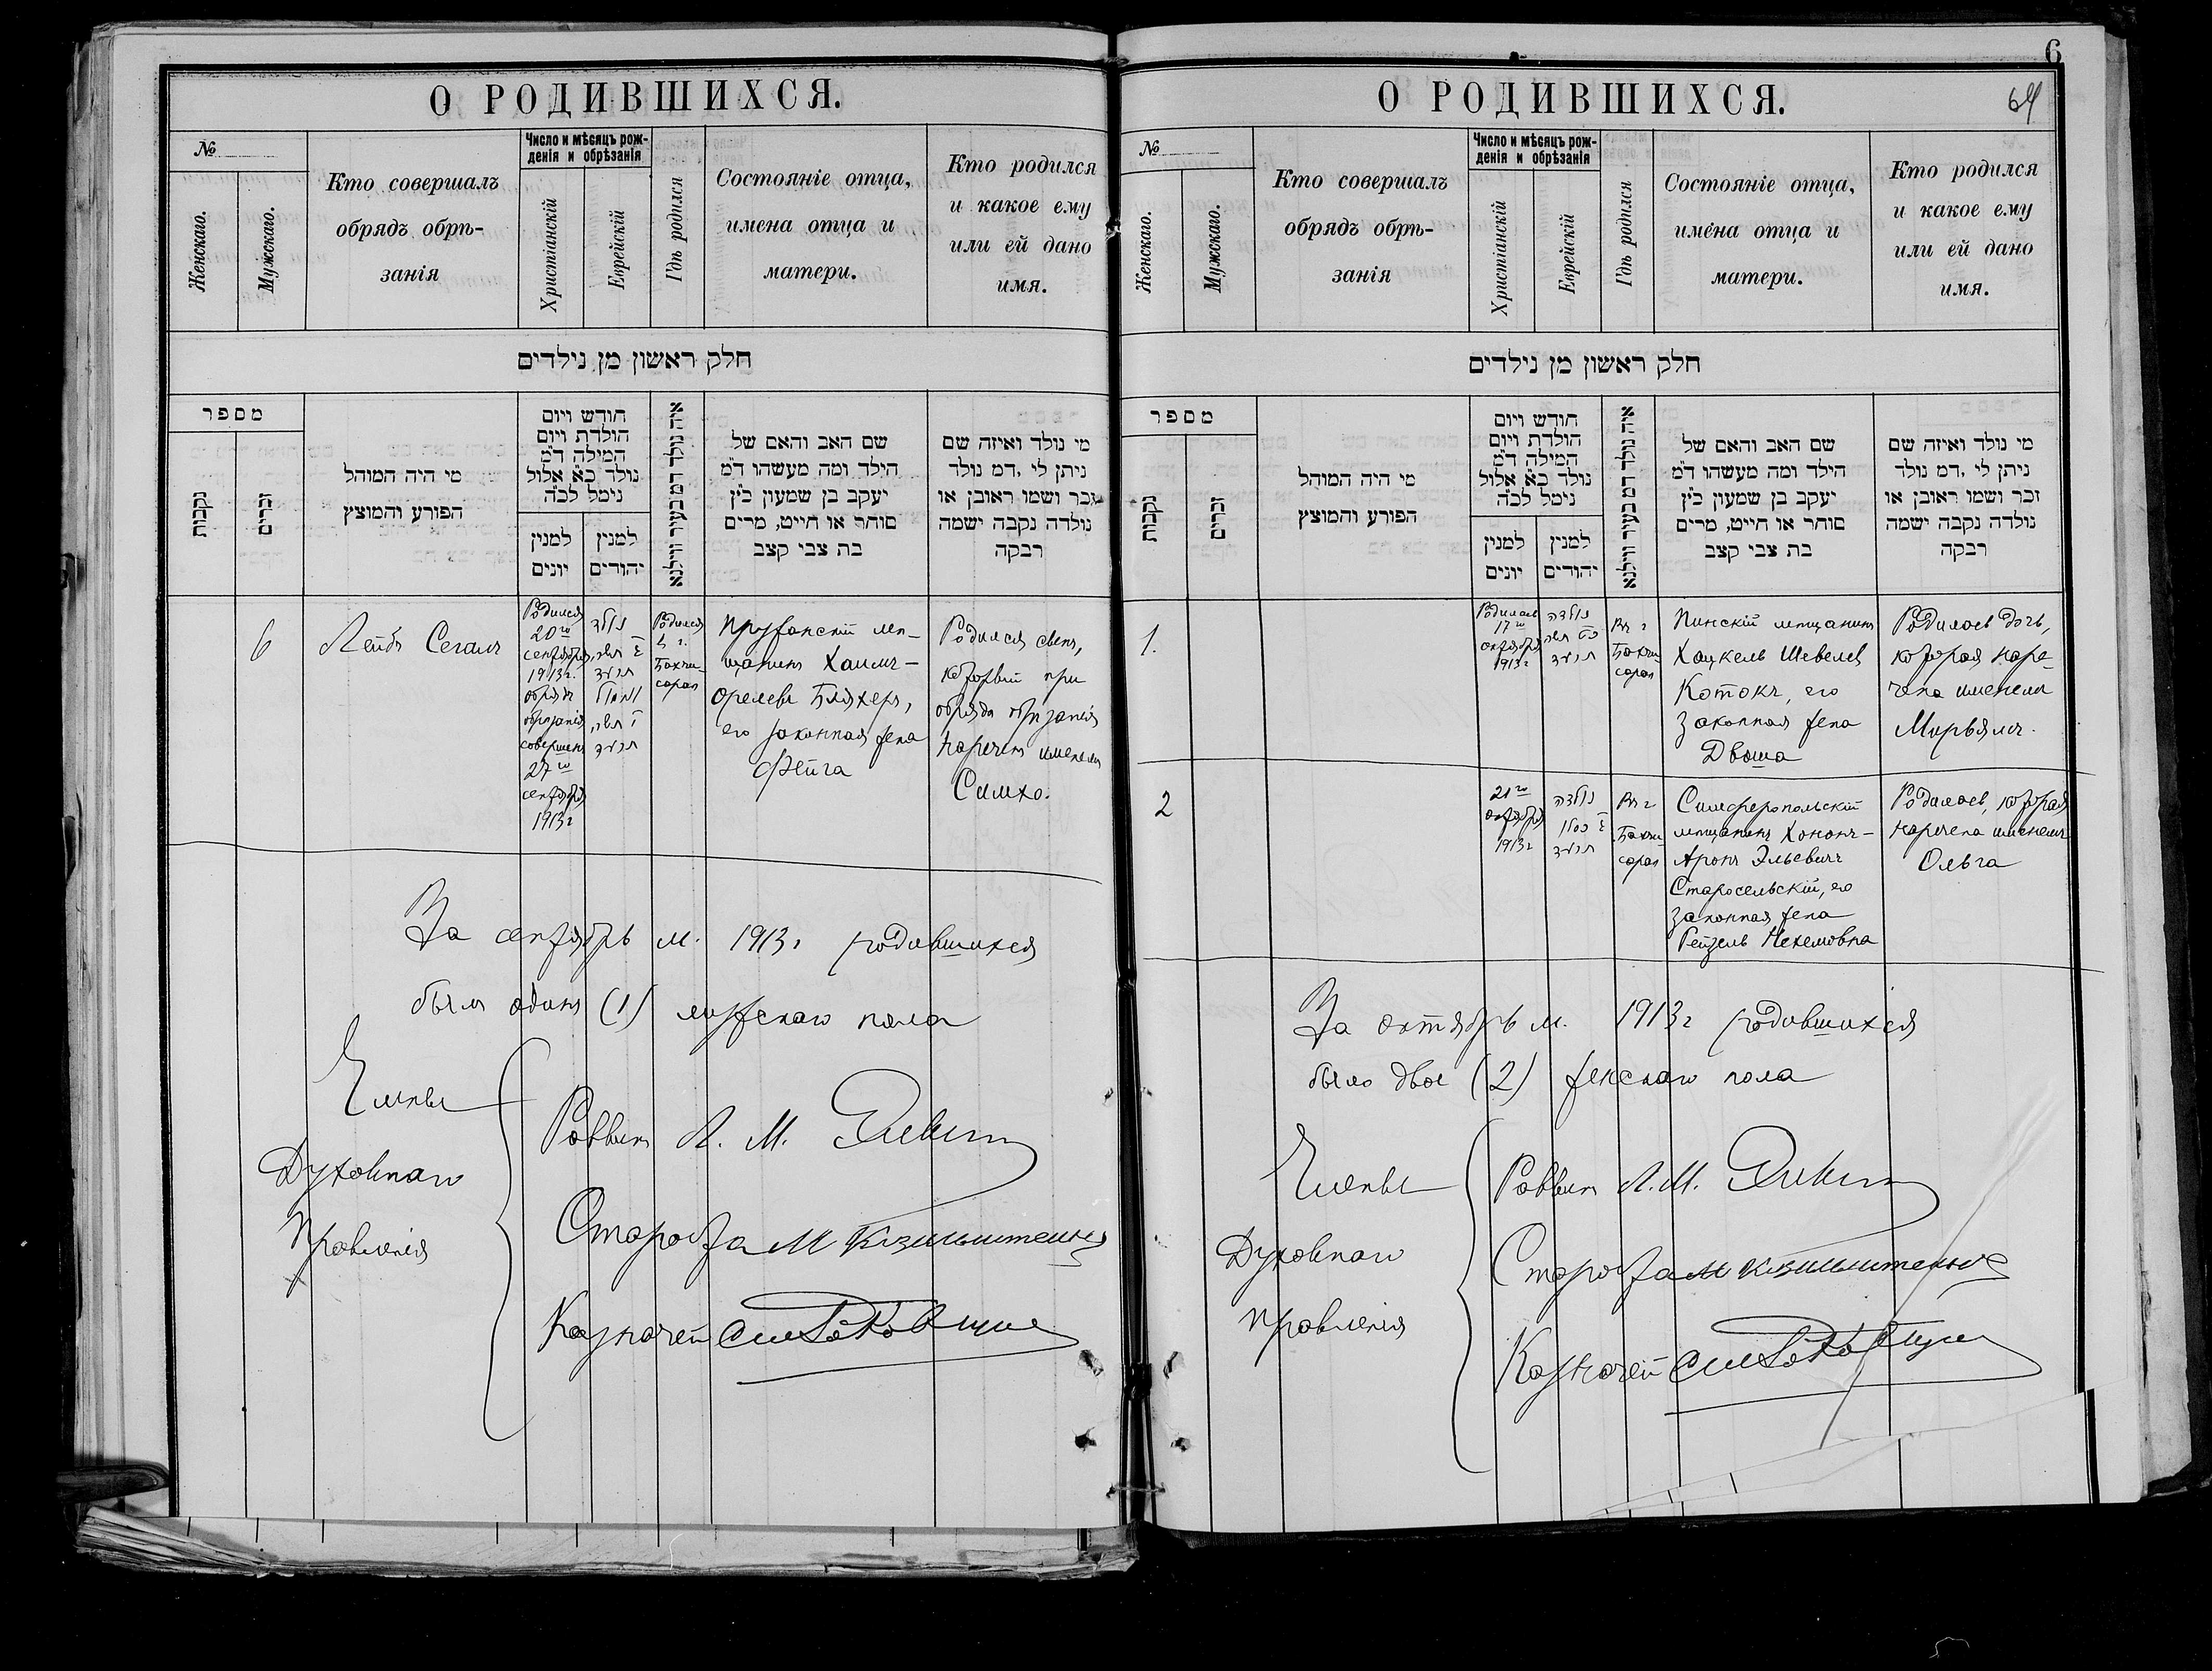 О РОДИВШИХСЯ.
№
Женскаго.
Мужскаго.
Кто совершалъ
обрядъ обрѣ-
занія
Число и мѣсяцъ рож-
денія и обрѣзанія
Христіанскій
Еврейскій
Гдѣ родился
Состояніе отца,
имена отца и
матери.
Кто родился
и какое ему
или ей дано
имя.
חלק ראשון מן נילדים
מספר
נקבות
זכרים
מי היה המוהל
הפורע והמוצץ
חודש ויום
הולדת ויום
המילה ד״מ
נולד כ״א אלול
נימל לכ״ה
למנין
יונים
למנין
יהודים
איה נולד דמ בעיר ווילנא
שם האב והאם של
הילד ומה מעשהו ד״מ
יעקב בן שמעון כ״ץ
סוחר או חייט, מרים
בת צבי קצב
מי נולד ואיזה שם
ניתן לי ,דמ נולד
זכר ושמו ראובן או
נולדה נקבה ישמה
רבקה
6
Лейбъ Сегалъ
Родился
20го
сентября
1913г.
обрядъ
обрѣзанія
совершенъ
27го
сентября
1913г
נולד
תרעד
תרעד
Родился
в г.
Бахчи-
сарая
Пружанскій мѣ-
щанинъ Хаимъ-
его законная жена
Фейга
Родился сынъ,
который при
обрядѣ обрѣзанія
нареченъ именемъ
Симхо.
За сентябрь м. 1913г родившихся
былъ одинъ (1) мужскаго пола
Члены
Духовнаго
Правленія
Раввинъ Л. М.
Староста М
Казначей
6
64
О РОДИВШИХСЯ.
№
Женскаго.
Мужскаго.
Кто совершалъ
обрядъ обрѣ-
занія
Число и мѣсяцъ рож-
денія и обрѣзанія
Христіанскій
Еврейскій
Гдѣ родился
Состояніе отца,
имена отца и
матери.
Кто родился
и какое ему
или ей дано
имя.
חלק ראשון מן נילדים
מספר
נקבות
זכרים
מי היה המוהל
הפורע והמוצץ
חודש ויום
הולדת ויום
המילה ד״מ
נולד כ״א אלול
נימל לכ״ה
למנין
יונים
למנין
יהודים
איה נולד דמ בעיר ווילנא
שם האב והאם של
הילד ומה מעשהו ד״מ
יעקב בן שמעון כ״ץ
סוחר או חייט, מרים
בת צבי קצב
מי נולד ואיזה שם
ניתן לי ,דמ נולד
זכר ושמו ראובן או
נולדה נקבה ישמה
רבקה
1.
Родилась
17го
октября
1913г
נולדה
תרעד
Въ г
Бахчи-
сарая
Пинскій мѣщанинъ
Хацкель Шевелев
Котокъ, его
законная жена
Двоша
Родилась дочь,
которая наре-
чена именемъ
Мирьямъ.
2
21го
октября
1913г
נולדה
כסלו
תרעד
Въ г
Бахчи-
сарая
Симферопольскій
мѣщанинъ Хононъ-
Аронъ Эльевичъ
Старосельскій, его
законная жена
Рейзель Нехемовна
Родилась, которая
наречена именемъ
Ольга
За октябрь м. 1913г родившихся
было двое (2) женскаго пола
Члены
Духовнаго
Правленія
Раввинъ Л. М.
Староста М
Казначей